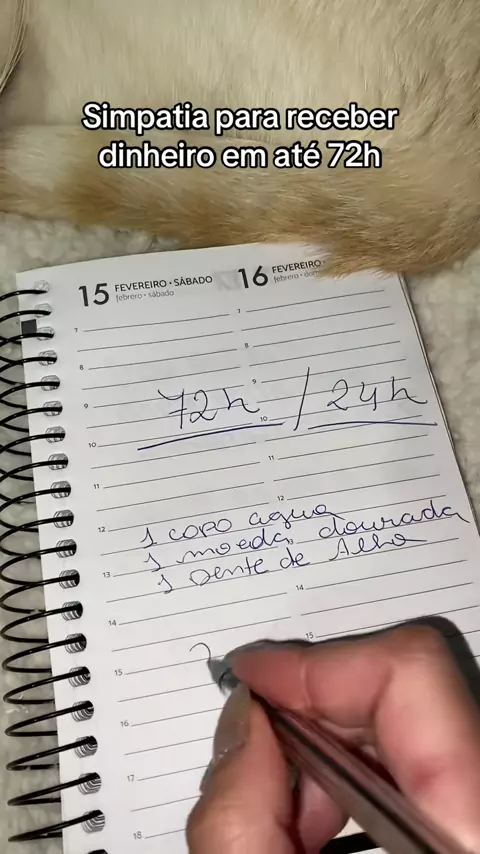 Simpatia para receber
dinheiro em até 72h
15 FEVEREIRO • SÁBADO
febrero • sábado
16 FEVEREIRO •
febrero •
7
8
9
10
11
12
13
14
15
16
17
18
7
8
9
10
11
12
14
15
72h / 24h
1 copo agua
1 moeda dourada
1 Dente de Alho